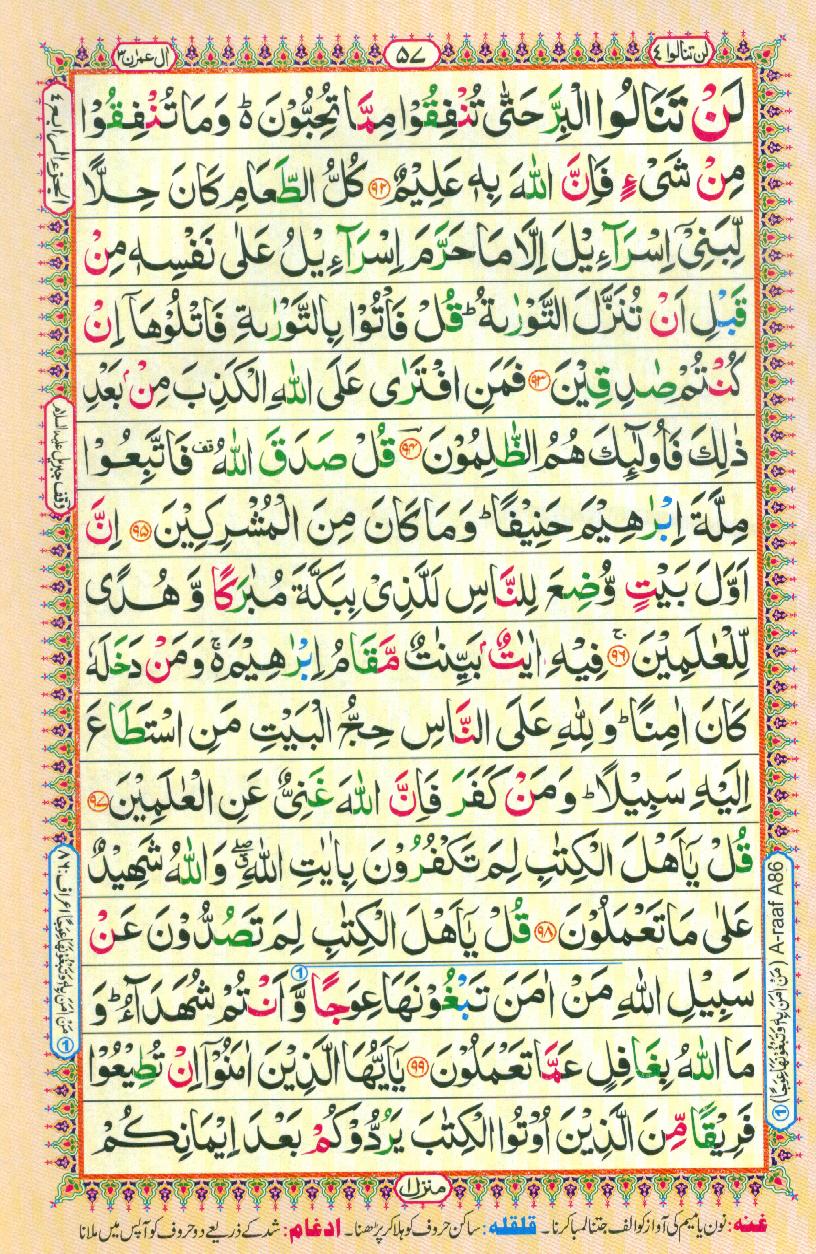 لن تنالوا ٤
٥٧
ال عمرٰن ٣
لَنْ تَنَالُوا الْبِرَّ حَتّٰى تُنْفِقُوْا مِمَّا تُحِبُّوْنَ ؕ۬ وَمَا تُنْفِقُوْا
مِنْ شَیْءٍ فَاِنَّ اللّٰهَ بِهٖ عَلِیْمٌ ﴿۹۲﴾ كُلُّ الطَّعَامِ كَانَ حِلًّا
لِّبَنِیْۤ اِسْرَآءِیْلَ اِلَّا مَا حَرَّمَ اِسْرَآءِیْلُ عَلٰى نَفْسِهٖ مِنْ
قَبْلِ اَنْ تُنَزَّلَ التَّوْرٰىةُ ؕ قُلْ فَاْتُوْا بِالتَّوْرٰىةِ فَاتْلُوْهَاۤ اِنْ
كُنْتُمْ صٰدِقِیْنَ ﴿۹۳﴾ فَمَنِ افْتَرٰى عَلَى اللّٰهِ الْكَذِبَ مِنْۢ بَعْدِ
ذٰلِكَ فَاُولٰٓىِٕكَ هُمُ الظّٰلِمُوْنَ ﴿۹۴﴾ قُلْ صَدَقَ اللّٰهُ ۫ فَاتَّبِعُوْا
مِلَّةَ اِبْرٰهِیْمَ حَنِیْفًا ؕ وَمَا كَانَ مِنَ الْمُشْرِكِیْنَ ﴿۹۵﴾ اِنَّ
اَوَّلَ بَیْتٍ وُّضِعَ لِلنَّاسِ لَلَّذِیْ بِبَكَّةَ مُبٰرَكًا وَّ هُدًى
لِّلْعٰلَمِیْنَ ﴿۹۶﴾ۚ فِیْهِ اٰیٰتٌۢ بَیِّنٰتٌ مَّقَامُ اِبْرٰهِیْمَ ۬ۚ وَمَنْ دَخَلَهٗ
كَانَ اٰمِنًا ؕ وَلِلّٰهِ عَلَى النَّاسِ حِجُّ الْبَیْتِ مَنِ اسْتَطَاعَ
اِلَیْهِ سَبِیْلًا ؕ وَمَنْ كَفَرَ فَاِنَّ اللّٰهَ غَنِیٌّ عَنِ الْعٰلَمِیْنَ ﴿۹۷﴾
قُلْ یٰۤاَهْلَ الْكِتٰبِ لِمَ تَكْفُرُوْنَ بِاٰیٰتِ اللّٰهِ ۖۗ وَاللّٰهُ شَهِیْدٌ
عَلٰى مَا تَعْمَلُوْنَ ﴿۹۸﴾ قُلْ یٰۤاَهْلَ الْكِتٰبِ لِمَ تَصُدُّوْنَ عَنْ
سَبِیْلِ اللّٰهِ مَنْ اٰمَنَ تَبْغُوْنَهَا عِوَجًا ① وَّاَنْتُمْ شُهَدَآءُ ؕ وَ
مَا اللّٰهُ بِغَافِلٍ عَمَّا تَعْمَلُوْنَ ﴿۹۹﴾ یٰۤاَیُّهَا الَّذِیْنَ اٰمَنُوْۤا اِنْ تُطِیْعُوْا
فَرِیْقًا مِّنَ الَّذِیْنَ اُوْتُوا الْكِتٰبَ یَرُدُّوْكُمْ بَعْدَ اِیْمَانِكُمْ
الجزء الرابع ٤
وقف جبریل علیہ السلام
① مَنْ اٰمَنَ بِهٖ وَتَبْغُوْنَهَا عِوَجًا اعراف: ۸۶
① (مَنْ اٰمَنَ بِهٖ وَتَبْغُوْنَهَا عِوَجًا) A-raaf A86
منزل ا
غنه: نون یا میم کی آواز کو الف جتنا لمبا کرنا۔ قلقله: ساکن حروف کو ہلا کر پڑھنا۔ ادغام: شد کے ذریعے دو حروف کو آپس میں ملانا